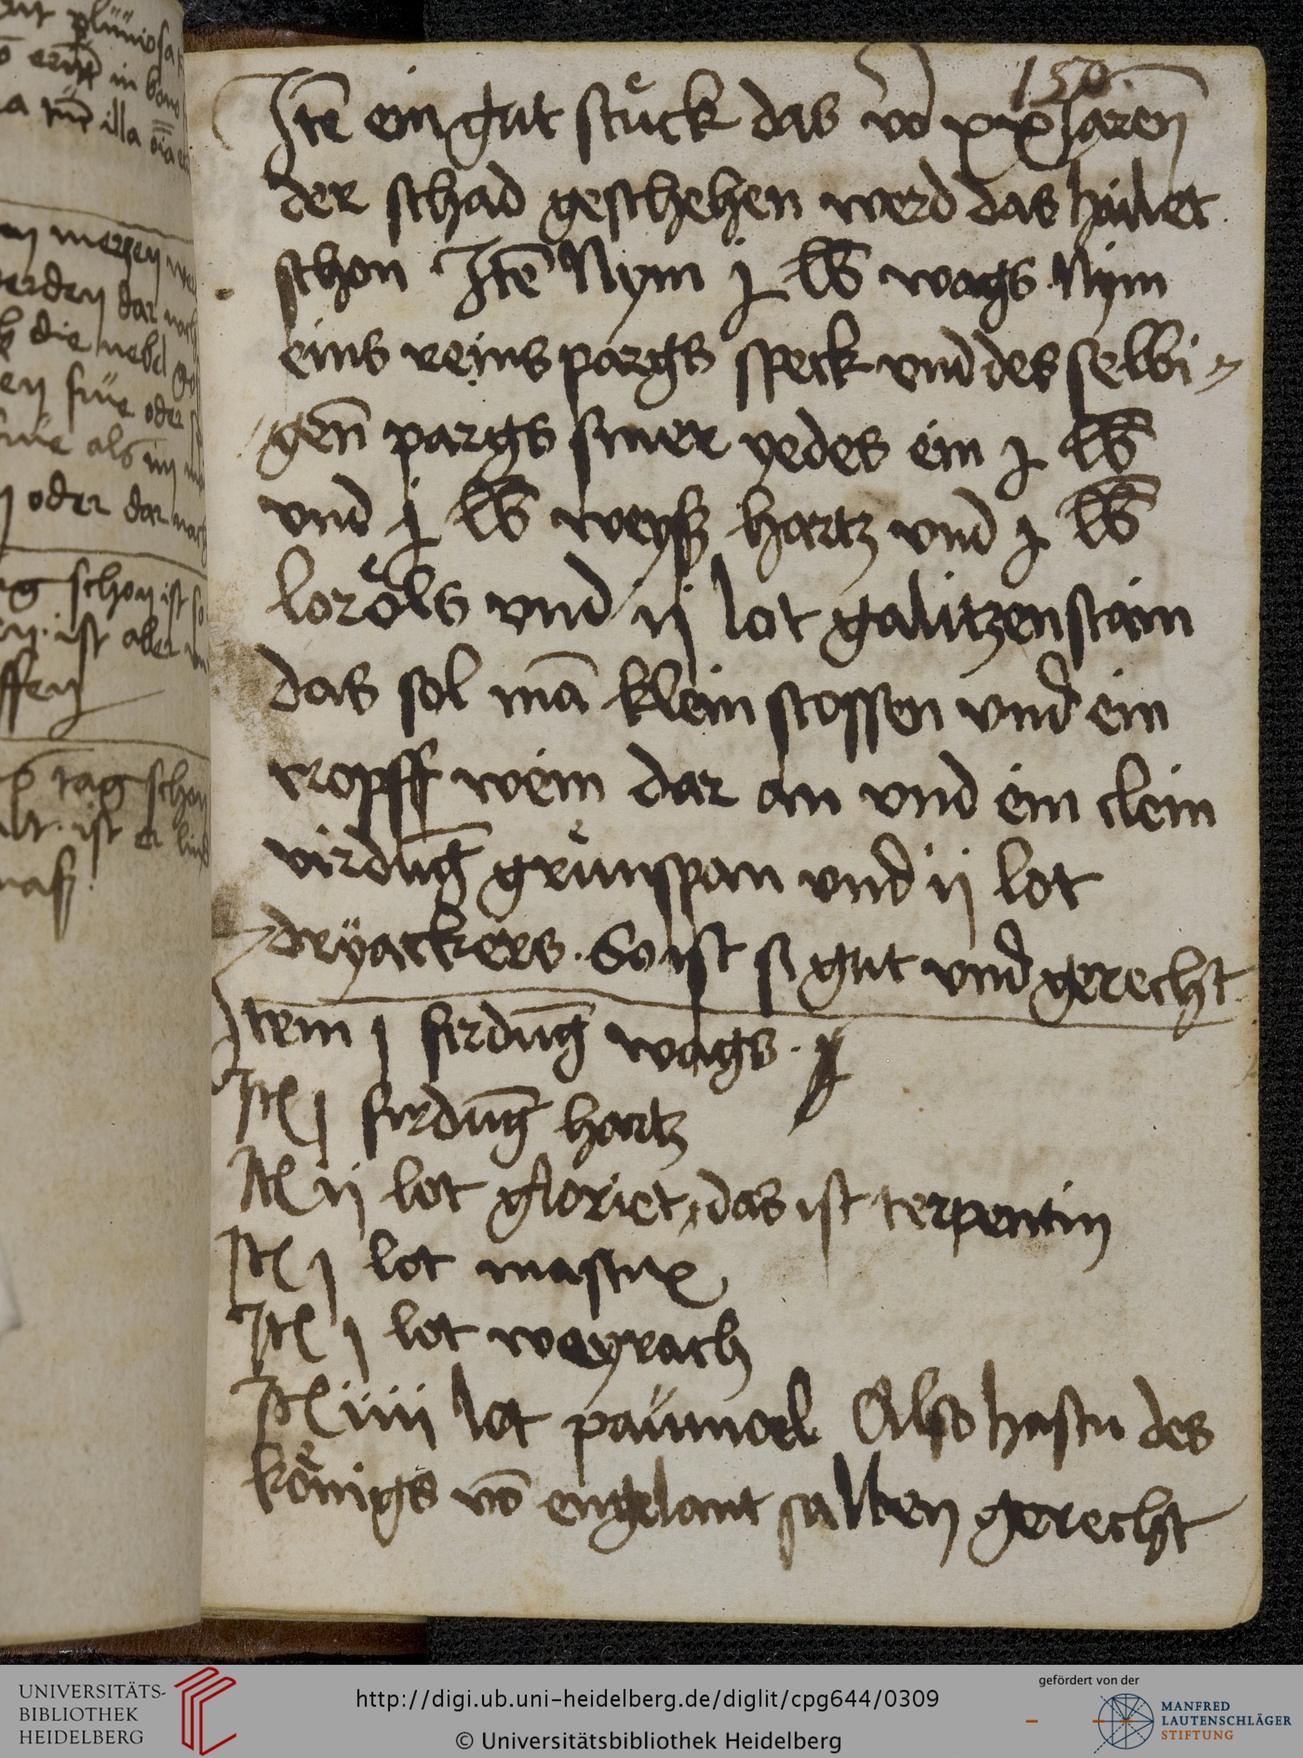 150.
Jtē ein gut stuͤck das vō xx Jaren
der schad geschehen werd das hailet
schon Jtē Nym j lb wags Nym
eins reins pargs speck vnd des selbi
gen̄ pargs smer yedes ein j lb
vnd j lb weyß hartz vnd j lb
loroͤls vnd ij lot galitzenstain
das sol mā klein stossen vnd ein
tropff wein dar an vnd ein clein
virdūg gruͤnspan vnd ij lot
dryackers. So ist si gut vnd gerecht
Jtem j firdūg wags.
Jtē j firdūg hartz
Jtē ij lot gloriet das ist terpentin
Jtē j lot mastix
Jtē j lot weyrach
Jtē iiij lot paümoel Also hastu des
koͤnigs vō engelant salben gerecht
UNIVERSITÄTS-
BIBLIOTHEK
HEIDELBERG
http://digi.ub.uni-heidelberg.de/diglit/cpg644/0309
© Universitätsbibliothek Heidelberg
gefördert von der
MANFRED
LAUTENSCHLÄGER
STIFTUNG